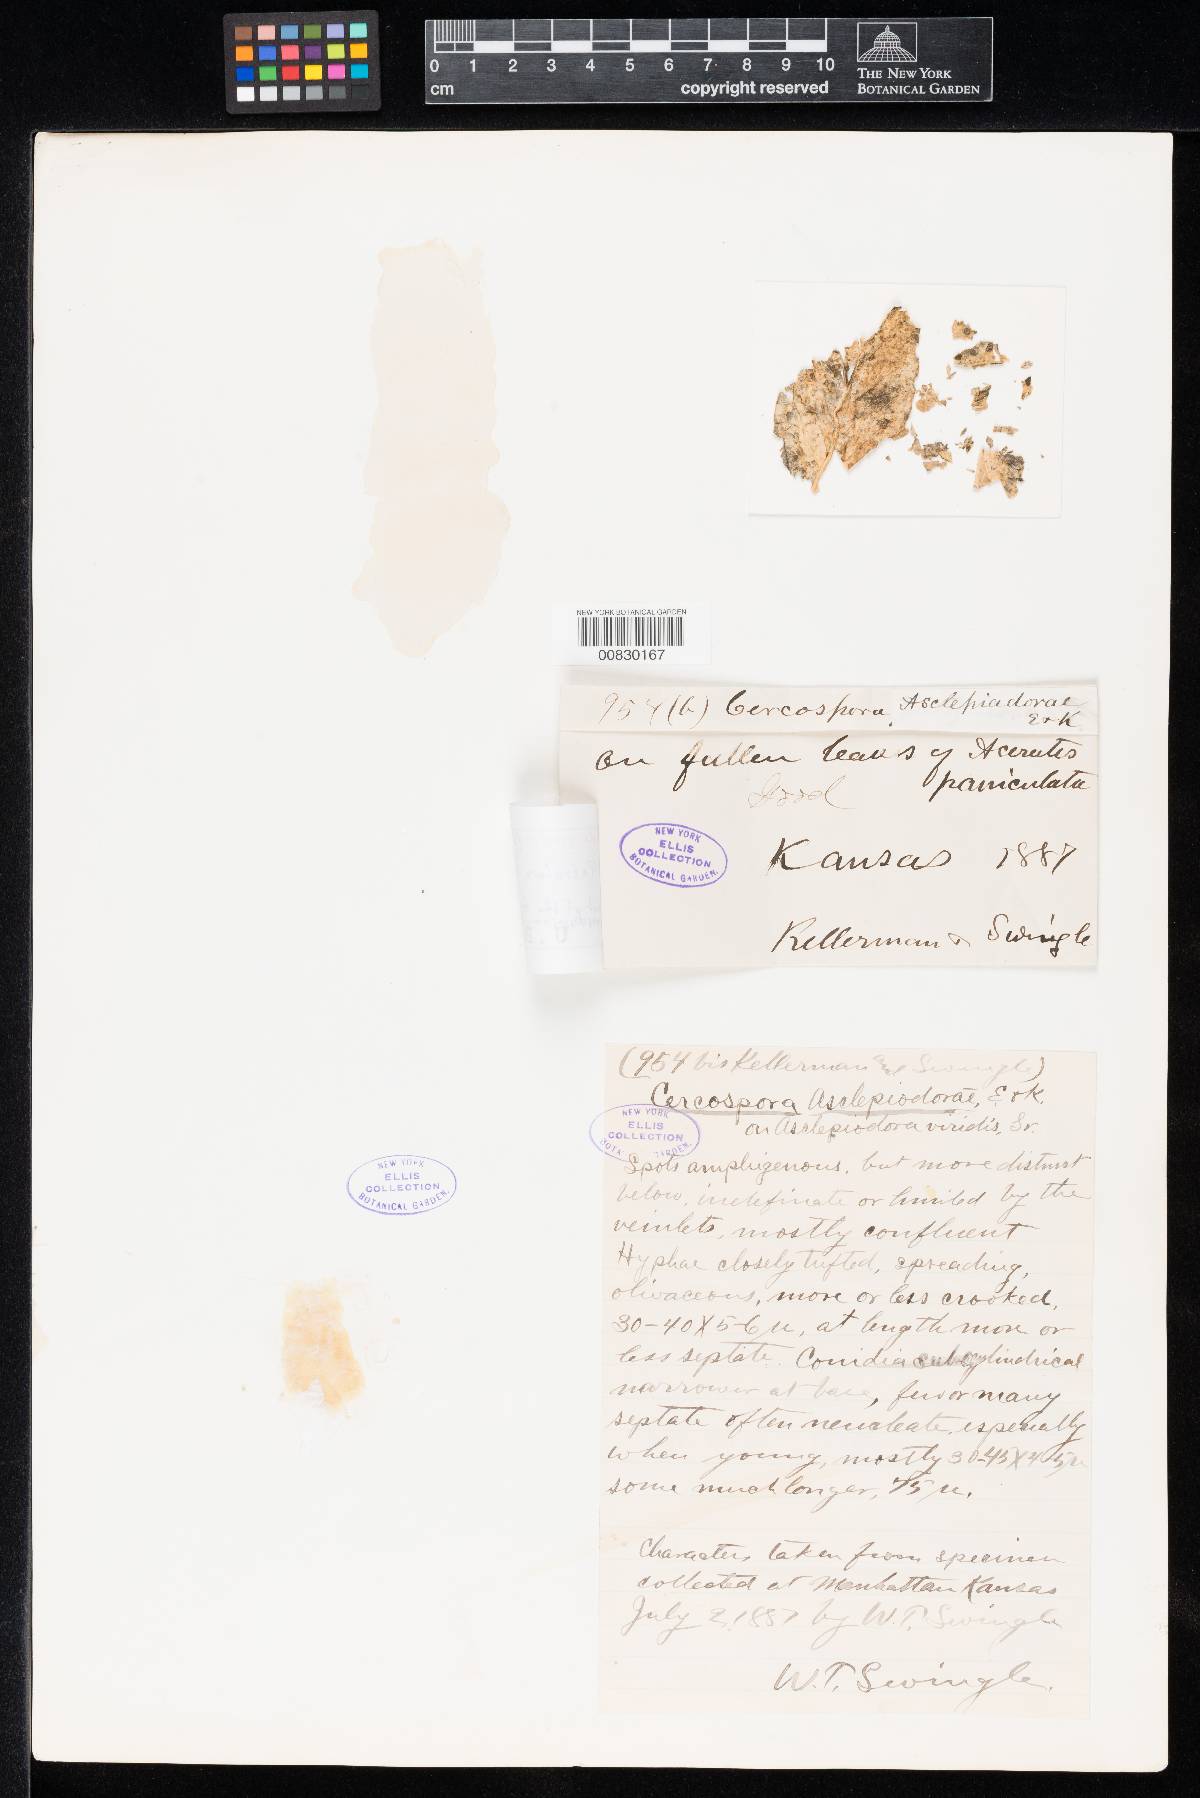 0 1 2 3 4 5 6 7 8 9 10
cm
copyright reserved
THE NEW YORK
BOTANICAL GARDEN
NEW YORK BOTANICAL GARDEN
00830167
954 (b) Cercospora Asclepiadorae
E & K
on fallen leaves of Acerates
paniculata
NEW YORK
ELLIS
COLLECTION
BOTANICAL GARDEN.
Kansas 1887
Kellerman & Swingle
(954 bis Kellerman and Swingle)
Cercospora Asclepiodorae, E & K.
on Asclepiodora viridis, Gr.
NEW YORK
ELLIS
COLLECTION
BOTA GARDEN.
Spots amphigenous, but more distinct
below, indefinate or limited by the
veinlets, mostly confluent
Hyphae closely tufted, spreading,
olivaceous, more or less crooked,
30-40 X 5-6 µ, at length more or
less septate. Conidia subcylindrical
narrower at base, few or many
septate often nucleate, especially
when young, mostly 30-45 X 4-5 µ
some much longer, 75 µ.
Characters taken from specimen
collected at Manhattan Kansas
July 2, 1887 by W. T. Swingle
W. T. Swingle.
NEW YORK
ELLIS
COLLECTION
BOTANICAL GARDEN.